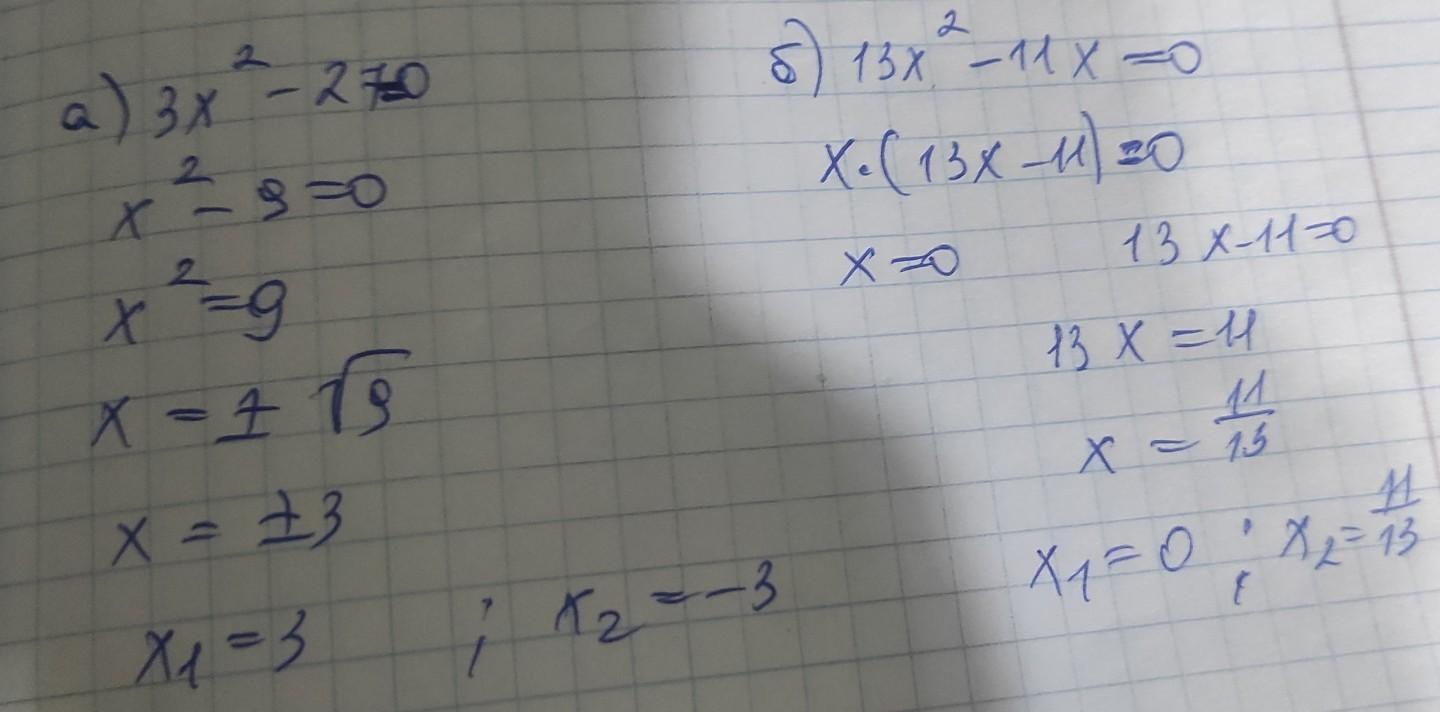 а) 3x² - 27=0
x² - 9 = 0
x² = 9
x = ± √9
x = ±3
x₁ = 3 ; x₂ = -3
б) 13x² - 11x = 0
x·(13x - 11) = 0
x = 0 13x - 11 = 0
13x = 11
x = 11/13
x₁ = 0 ; x₂ = 11/13